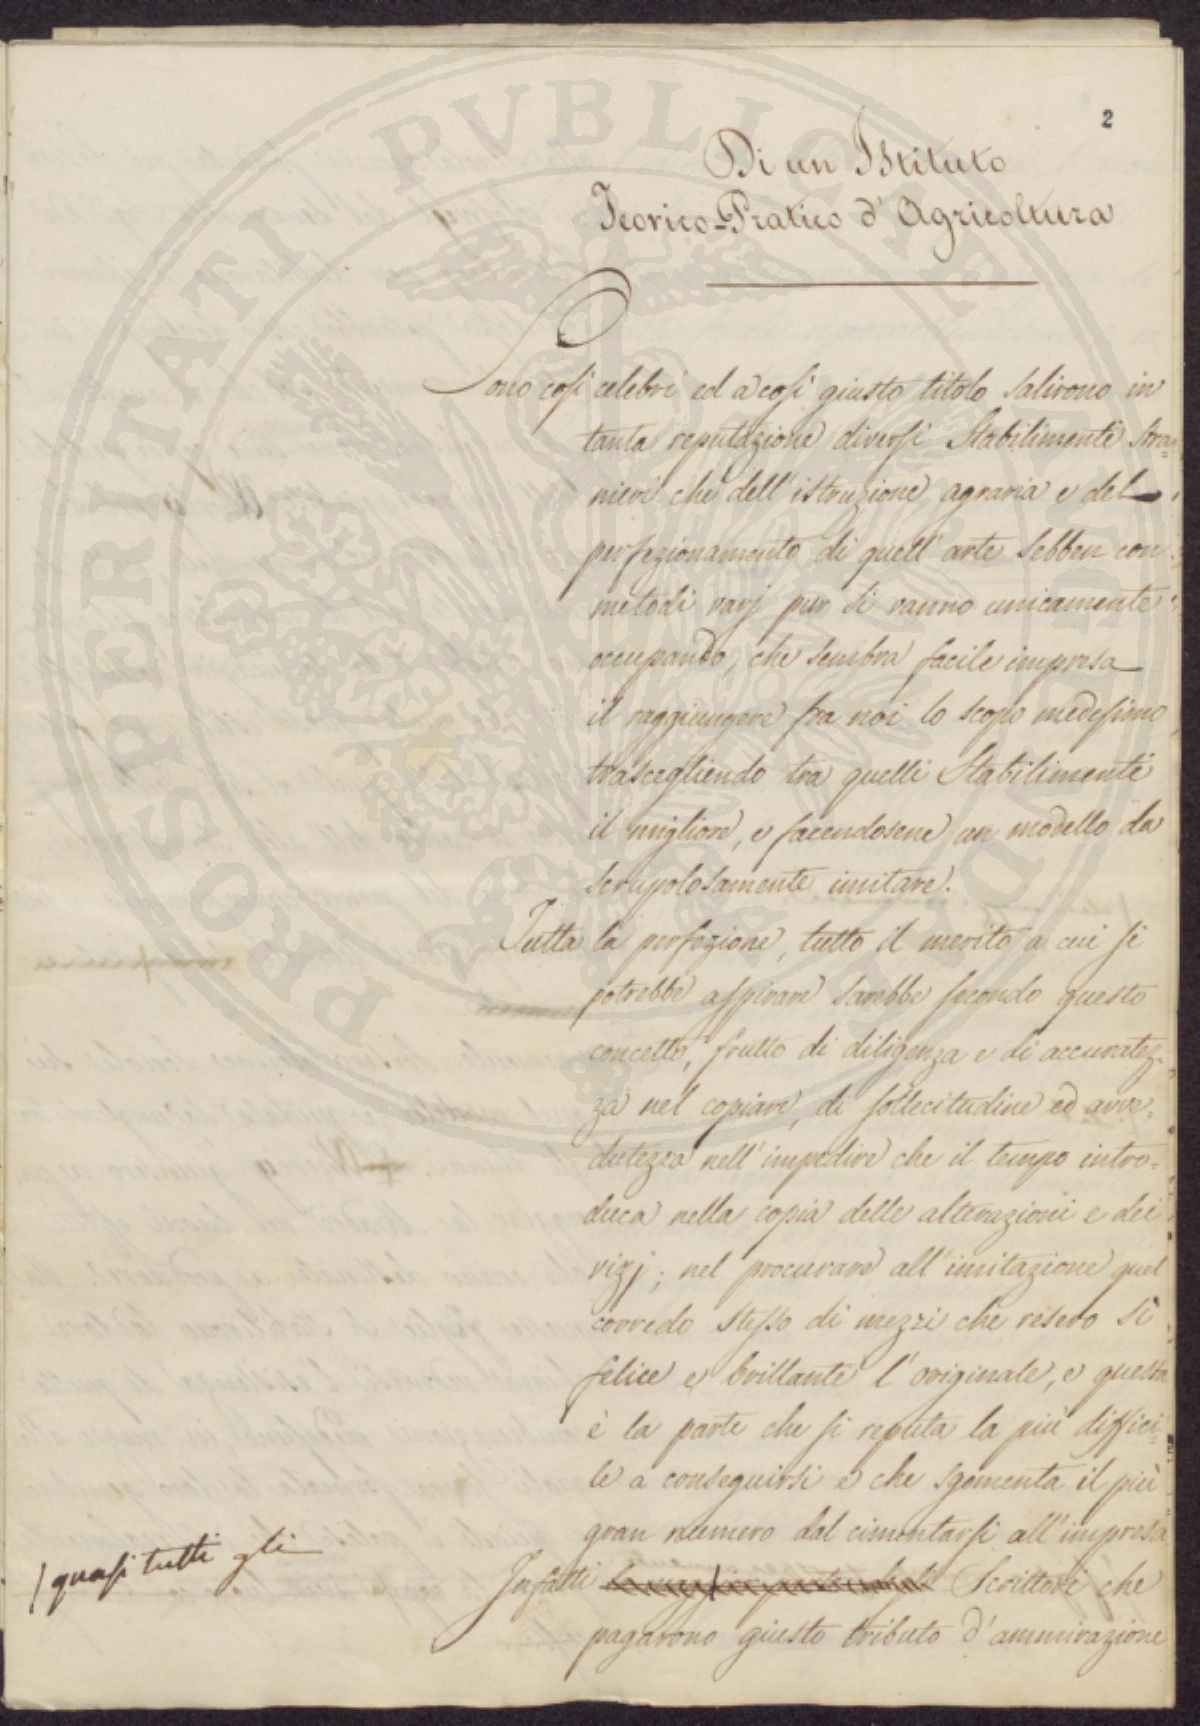 2
Di un Istituto
Teorico-Pratico d'Agricoltura
Sono così celebri ed a così giusto titolo salirono in
tanta reputazione diversi Stabilimenti stra=
nieri che dell'istruzione agraria e del
perfezionamento di quell'arte sebben con
metodi varj pur si vanno unicamente
occupando, che sembra facile impresa
il raggiungere fra noi lo scopo medesimo
trascegliendo tra quelli Stabilimenti
il migliore, e facendosene un modello da
scrupolosamente imitare.
Tutta la perfezione, tutto il merito a cui si
potrebbe aspirare sarebbe secondo questo
concetto, frutto di diligenza e di accuratez=
za nel copiare, di sollecitudine ed avve=
dutezza nell'impedire che il tempo intro=
duca nella copia delle alterazioni e dei
vizj; nel procurare all'imitazione quel
corredo stesso di mezzi che resero sì
felice e brillante l'originale, e questa
è la parte che si reputa la più diffici=
le a conseguirsi e che sgomenta il più
gran numero dal cimentarsi all'impresa
/ quasi tutti gli
Infatti la maggior parte degli Scrittori che
pagarono giusto tributo d'ammirazione
PROSPERITATI PVBLICAE